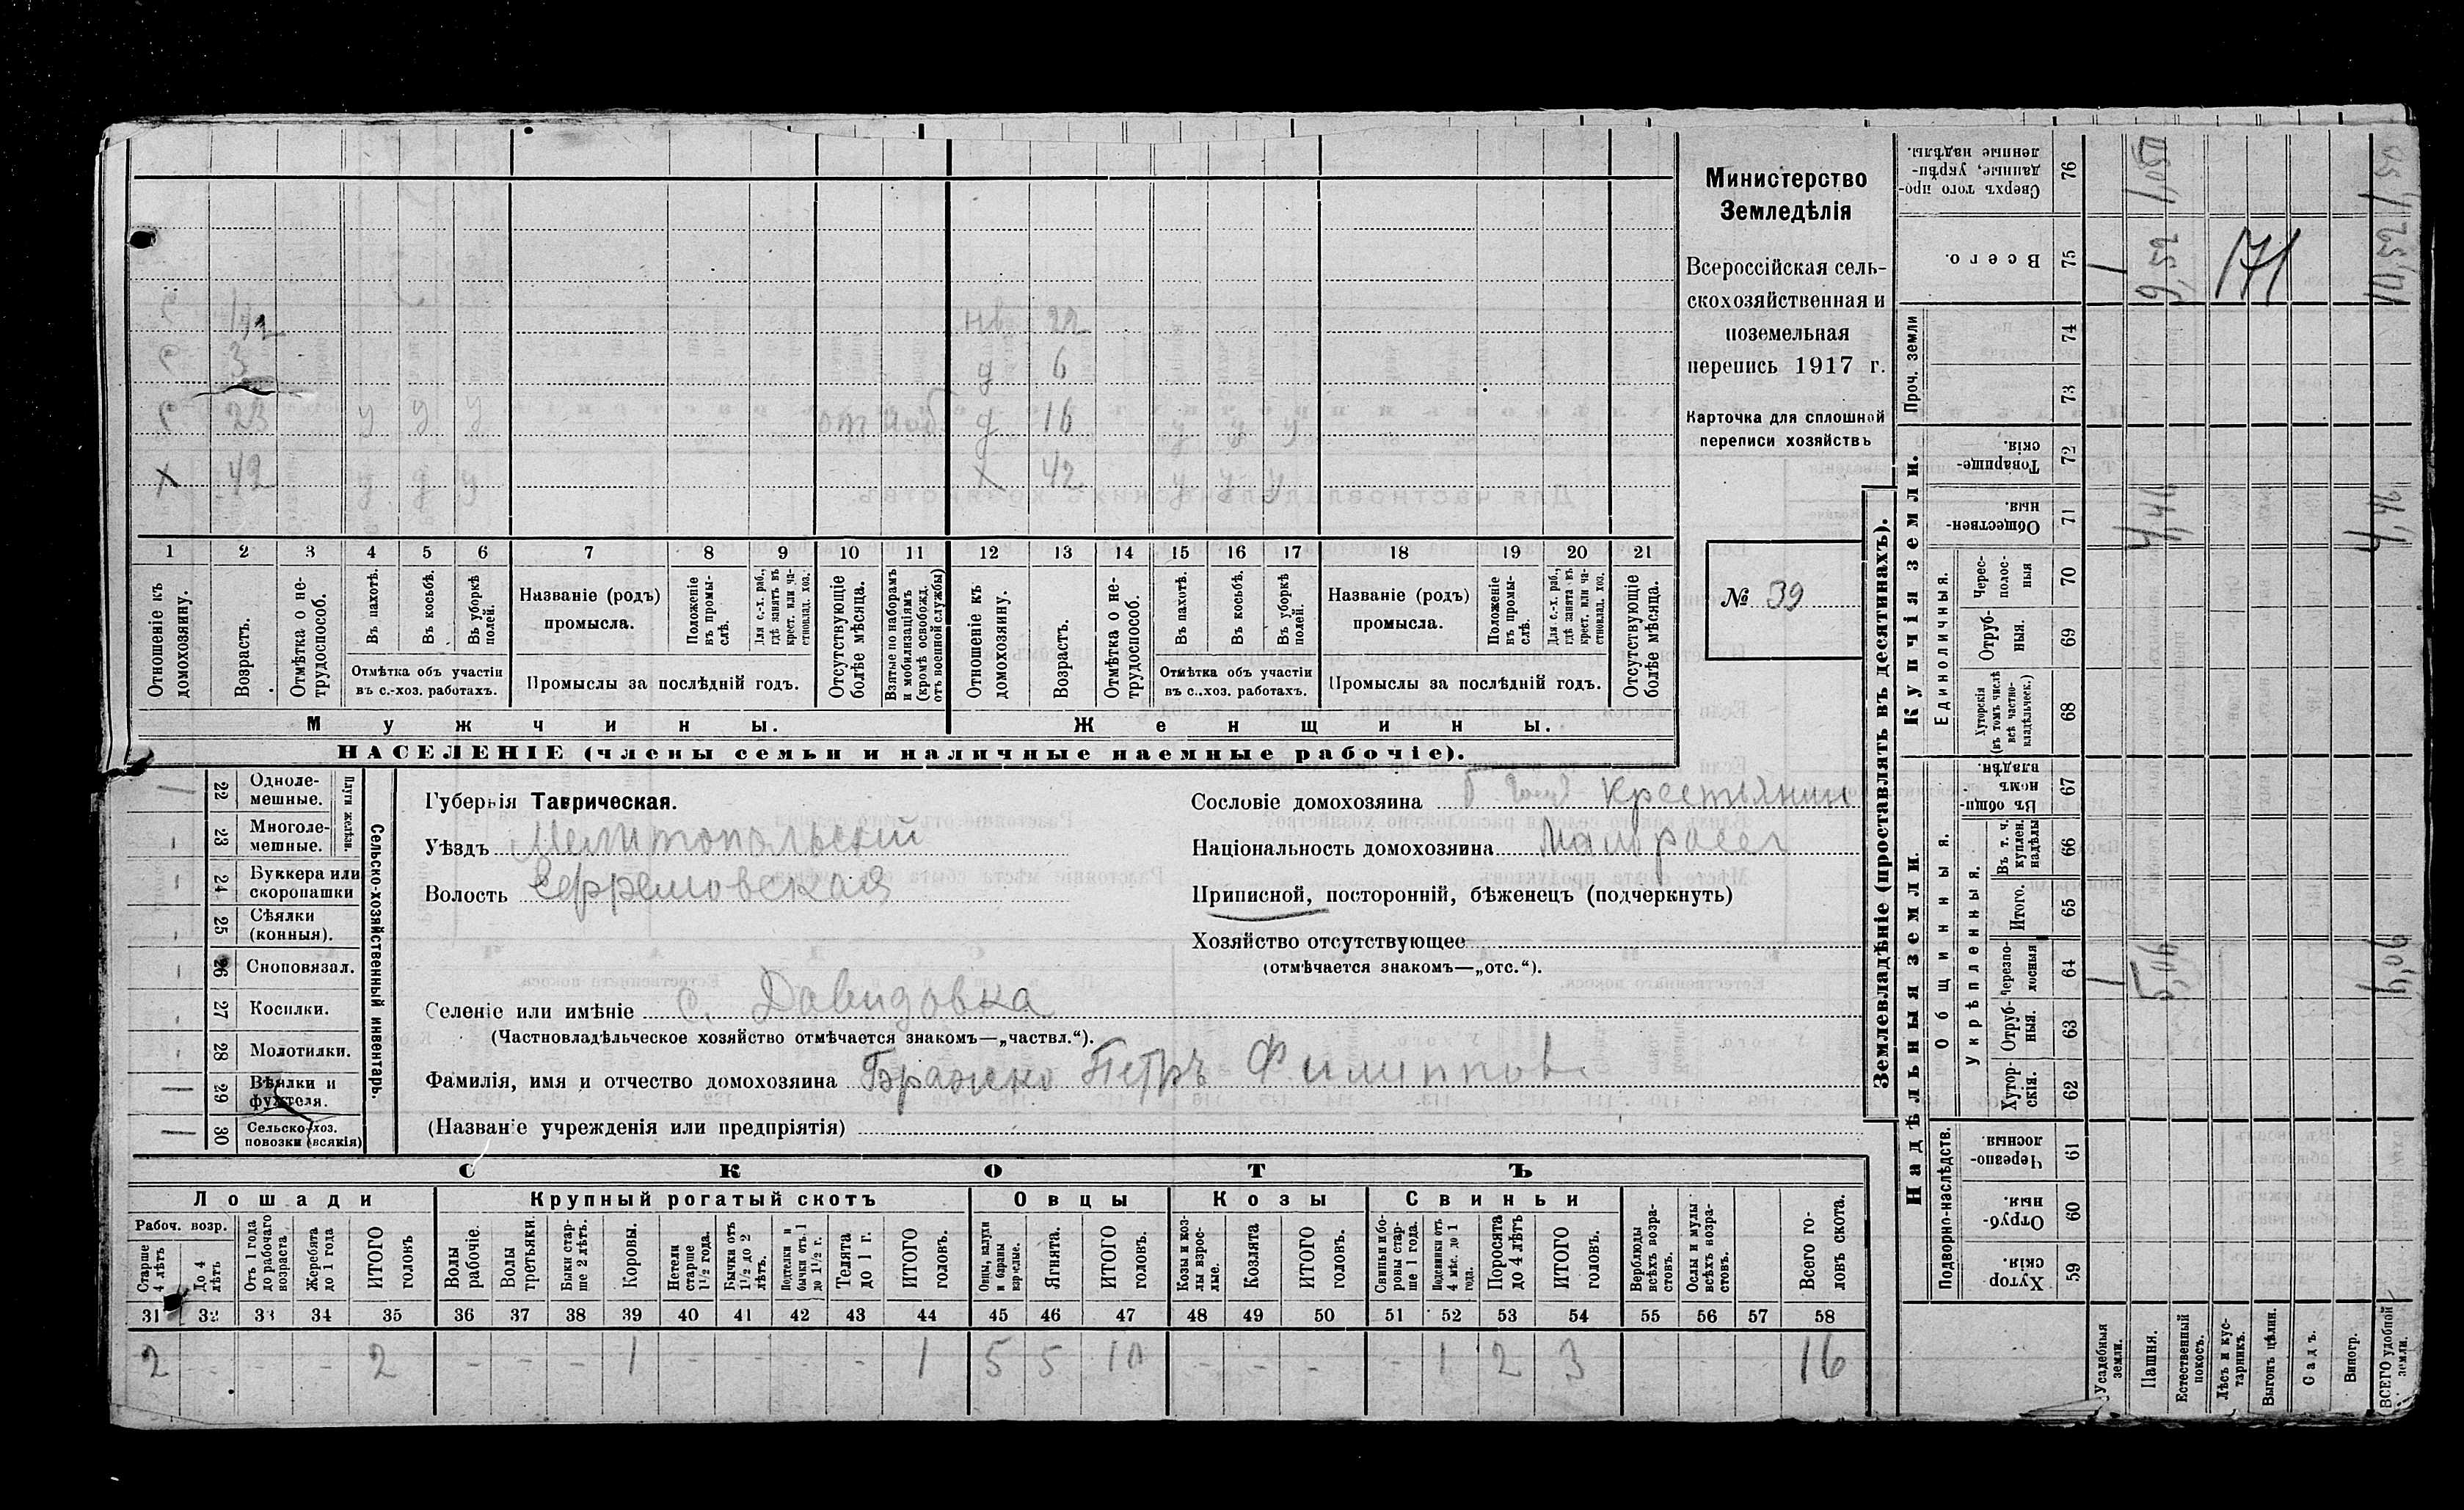 с 1/12 нв 22
с 3 д 6
с 23 у у у от моб д 16 у у у
х 42 у у у х 42 у у у
1 2 3 4 5 6 7 8 9 10 11 12 13 14 15 16 17 18 19 20 21
Отношеніе къ домохозяину.
Возрастъ.
Отмѣтка о нетрудоспособ.
Въ пахотѣ.
Въ косьбѣ.
Въ уборкѣ полей.
Отмѣтка объ участіи въ с.-хоз. работахъ.
Названіе (родъ) промысла.
Положеніе въ промыслѣ.
Для с.-х. раб., гдѣ занятъ въ крест. или частновлад. хоз.
Промыслы за послѣдній годъ.
Отсутствующіе болѣе мѣсяца.
Взятые по наборамъ и мобилизаціямъ (кромѣ освобожд. отъ военной службы)
Отношеніе къ домохозяину.
Возрастъ.
Отмѣтка о нетрудоспособ.
Въ пахотѣ.
Въ косьбѣ.
Въ уборкѣ полей.
Отмѣтка объ участіи въ с.-хоз. работахъ.
Названіе (родъ) промысла.
Положеніе въ промыслѣ.
Для с.-х. раб., гдѣ занята въ крест. или частновлад. хоз.
Промыслы за послѣдній годъ.
Отсутствующіе болѣе мѣсяца.
Мужчины.
Женщины.
НАСЕЛЕНІЕ (члены семьи и наличные наемные рабочіе).
Министерство
Земледѣлія
Всероссійская сель-
скохозяйственная и
поземельная
перепись 1917 г.
Карточка для сплошной
переписи хозяйствъ
№ 39
22 Одноле-мешные.
23 Многоле-мешные.
Плуги желѣзн.
24 Буккера или скоропашки
25 Сѣялки (конныя).
26 Сноповязал.
27 Косилки.
28 Молотилки.
29 Вѣялки и фухтеля.
30 Сельско-хоз. повозки (всякія)
Сельско-хозяйственный инвентарь.
Губернія Таврическая.
Уѣздъ Мелитопольскій
Волость Ефремовская
Селеніе или имѣніе с. Давидовка
(Частновладѣльческое хозяйство отмѣчается знакомъ—„частвл.“).
Фамилія, имя и отчество домохозяина Бражко Петръ Филиппов
(Названіе учрежденія или предпріятія)
Сословіе домохозяина крестьянин
Національность домохозяина Малоросс
Приписной, посторонній, бѣженец (подчеркнуть)
Хозяйство отсутствующее
(отмѣчается знакомъ—„отс.“).
СКОТЪ
Лошади
Крупный рогатый скотъ
Овцы
Козы
Свиньи
Рабоч. возр.
Старше 4 лѣтъ
До 4 лѣтъ
Отъ 1 года до рабочаго возраста
Жеребята до 1 года
ИТОГО головъ
Волы рабочіе.
Волы третьяки.
Быки старше 2 лѣтъ.
Коровы.
Нетели старше 1½ года.
Бычки отъ 1½ до 2 лѣтъ.
Подтелки и бычки отъ 1 до 1½ г.
Телята до 1 г.
ИТОГО головъ.
Овцы, валухи и бараны взрослые.
Ягнята.
ИТОГО головъ.
Козы и козлы взрослые.
Козлята
ИТОГО головъ.
Свиньи и боровы старше 1 года.
Подсвинки отъ 4 мѣс. до 1 года.
Поросята до 4 лѣтъ
ИТОГО головъ.
Верблюды всѣхъ возрастовъ.
Ослы и мулы всѣхъ возрастовъ.
Всего головъ скота.
31 32 33 34 35 36 37 38 39 40 41 42 43 44 45 46 47 48 49 50 51 52 53 54 55 56 57 58
2 - - - 2 - - - 1 - - - - 1 5 5 10 - - - - 1 2 3 16
Землевладѣніе (проставлять въ десятинахъ).
Надѣльныя земли.
Купчія земли.
Проч. земли
Подворно-наслѣдств.
Общинныя.
Укрѣпленныя.
Единоличныя.
Хуторскія 59
Отрубныя. 60
Черезполосныя. 61
Хуторскія. 62
Отрубныя. 63
Черезполосныя 64
Итого. 65
Въ т. ч. куплен. надѣлы 66
Въ общинномъ владѣн. 67
Хуторскія (въ томъ числѣ всѣ частновладѣльческ.) 68
Отрубныя. 69
Чересполосныя 70
Общественныя. 71
Товарищескія. 72
73
74
Всего. 75
Сверхъ того проданные, укрѣпленные надѣлы. 76
Усадебныя земли.
Пашня.
Естественный покосъ.
Лѣсъ и кустарникъ.
Выгонъ цѣлин.
Садъ.
Виногр.
ВСЕГО удобной земли.
1
5,06
4,46
9,52
1,50
171
4,46
10,52